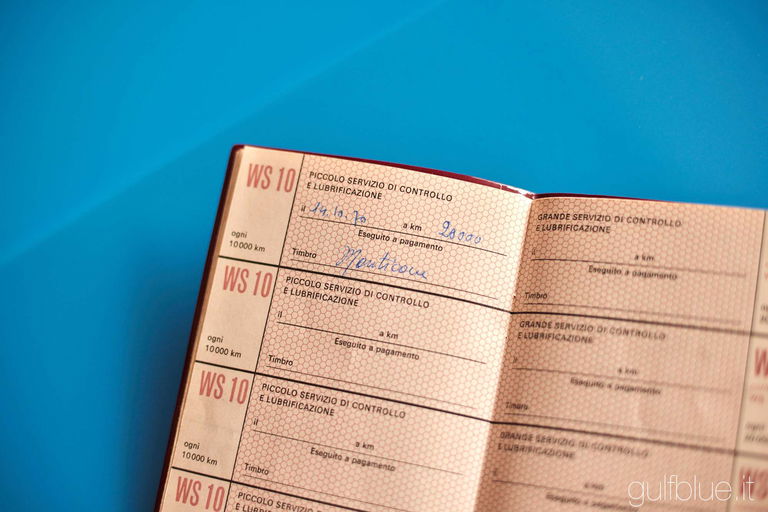 WS 10
ogni
10 000 km
PICCOLO SERVIZIO DI CONTROLLO
E LUBRIFICAZIONE
il 14.10.70 a km 20000
Eseguito a pagamento
Timbro
WS 10
ogni
10 000 km
PICCOLO SERVIZIO DI CONTROLLO
E LUBRIFICAZIONE
il
a km
Eseguito a pagamento
Timbro
WS 10
ogni
10 000 km
PICCOLO SERVIZIO DI CONTROLLO
E LUBRIFICAZIONE
il
a km
Eseguito a pagamento
Timbro
WS 10
PICCOLO SERVIZIO DI CONTROLLO
E LUBRIFICAZIONE
GRANDE SERVIZIO DI CONTROLLO
E LUBRIFICAZIONE
il
a km
Eseguito a pagamento
Timbro
GRANDE SERVIZIO DI CONTROLLO
E LUBRIFICAZIONE
il
a km
Eseguito a pagamento
Timbro
GRANDE SERVIZIO DI CONTROLLO
E LUBRIFICAZIONE
il
a km
Eseguito a pagamento
gulfblue.it